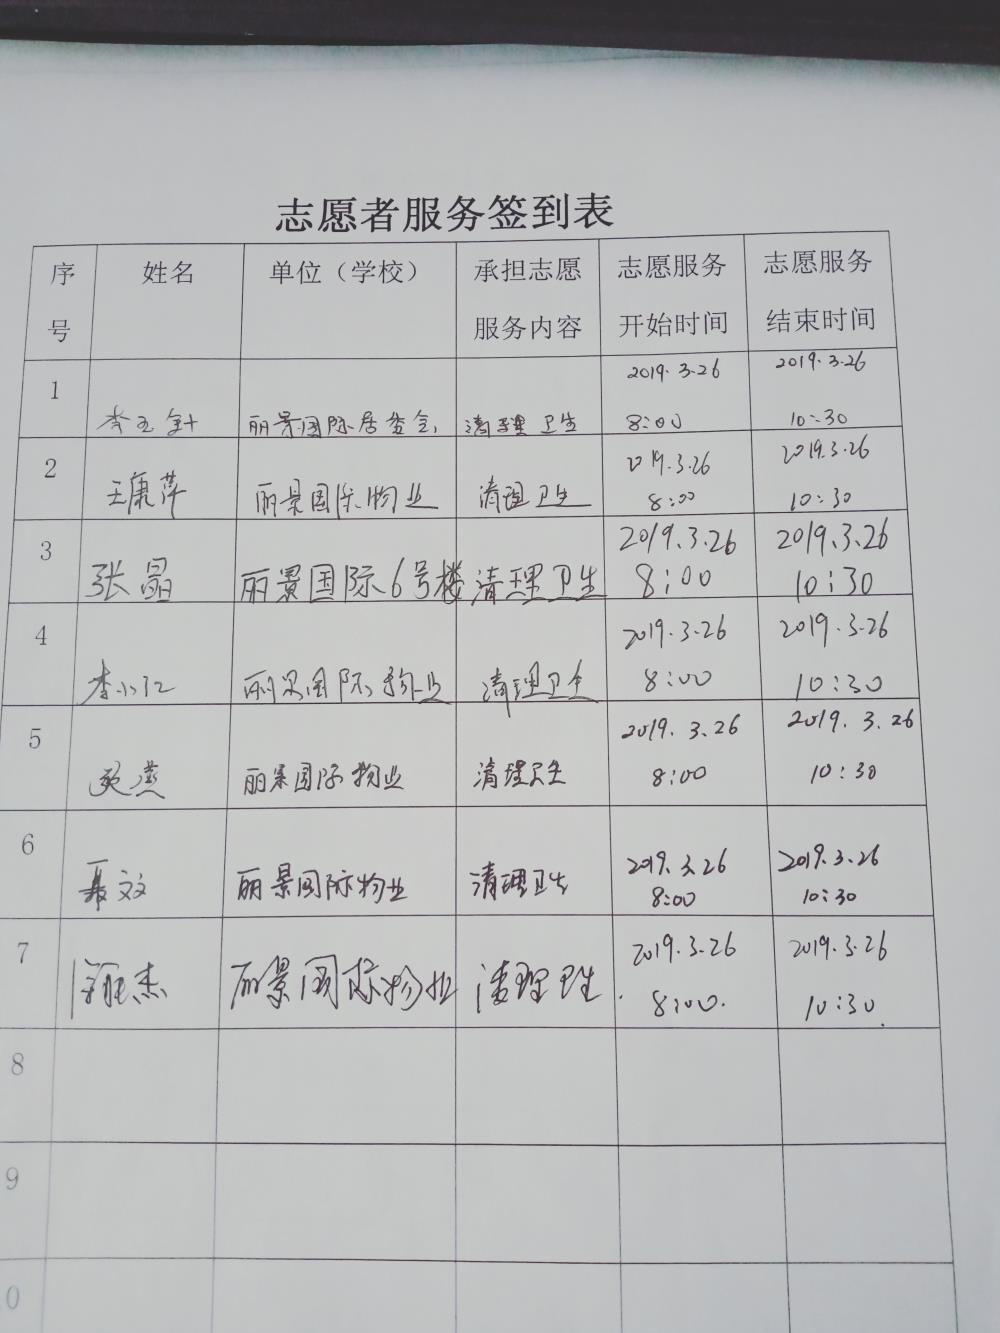 志愿者服务签到表
序号 姓名 单位（学校） 承担志愿服务内容 志愿服务开始时间 志愿服务结束时间
1 李玉针 丽景国际居委会 清理卫生 2019.3.26 8:00 2019.3.26 10:30
2 王康萍 丽景国际物业 清理卫生 2019.3.26 8:00 2019.3.26 10:30
3 张晶 丽景国际6号楼 清理卫生 2019.3.26 8:00 2019.3.26 10:30
4 李小红 丽景国际物业 清理卫生 2019.3.26 8:00 2019.3.26 10:30
5 丽景国际物业 清理卫生 2019.3.26 8:00 2019.3.26 10:30
6 聂文 丽景国际物业 清理卫生 2019.3.26 8:00 2019.3.26 10:30
7 杰 丽景国际物业 清理卫生. 2019.3.26 8:00. 2019.3.26 10:30.
8
9
0